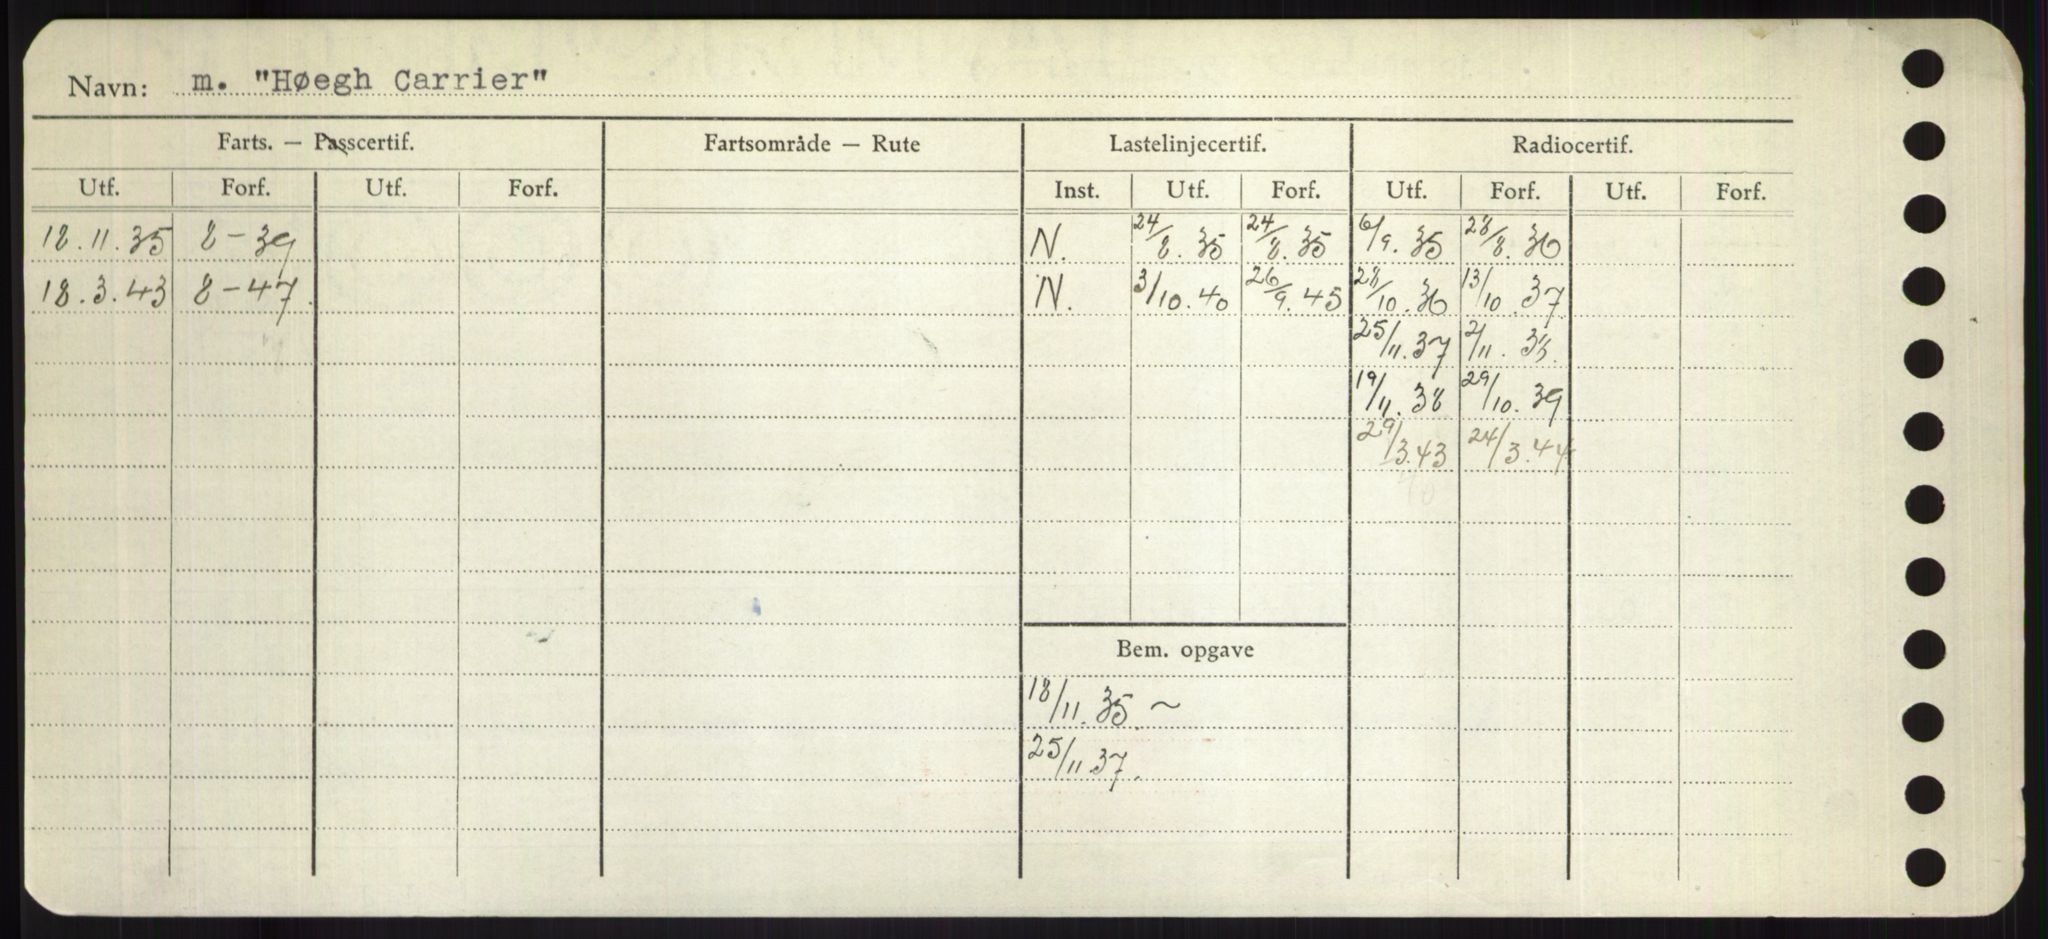 Navn: m. "Høegh Carrier"
Farts. — Passcertif. Fartsområde — Rute Lastelinjecertif. Radiocertif.
Utf. Forf. Utf. Forf. Inst. Utf. Forf. Utf. Forf. Utf. Forf.
18.11.35 8-39 N. 24/8.35 24/8.35 6/9.35 28/8.36
18.3.43 8-47. N. 3/10.40 26/9.45 28/10.36 13/10.37
25/11.37 2/11.38.
19/11.38 29/10.39
29/3.43 24/3.44
Bem. opgave
18/11.35 ~
25/11.37.